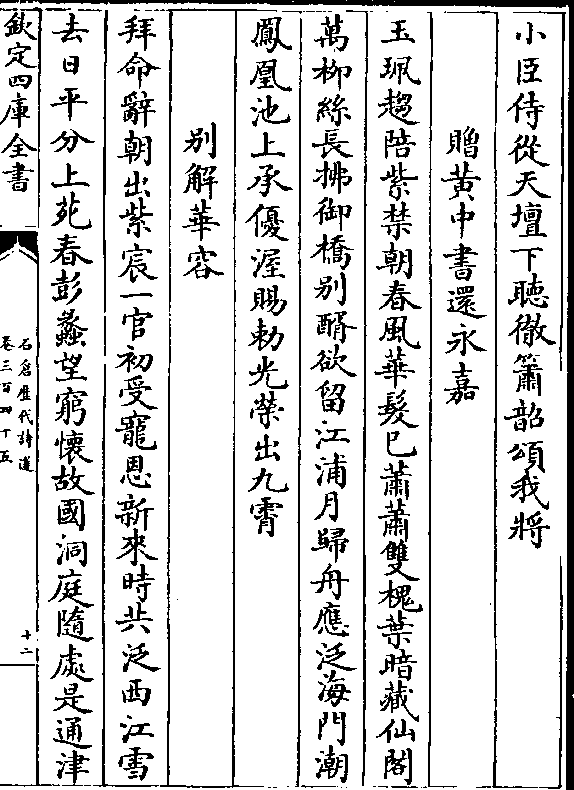 小臣侍從天壇下聽徹簫韶頌我將
贈黃中書還永嘉
玉珮趨陪紫禁朝春風華髮已蕭蕭雙槐葉暗藏仙閣
萬柳絲長拂御橋别醑欲留江浦月歸舟應泛海門潮
鳳凰池上承優渥賜勅光榮出九霄
别解華容
拜命辭朝出紫宸一官初受寵恩新來時共泛西江雪
去日平分上苑春彭蠡望窮懷故國洞庭隨處是通津
欽定四庫全書
石倉歴代詩選
卷三百四十五
十二